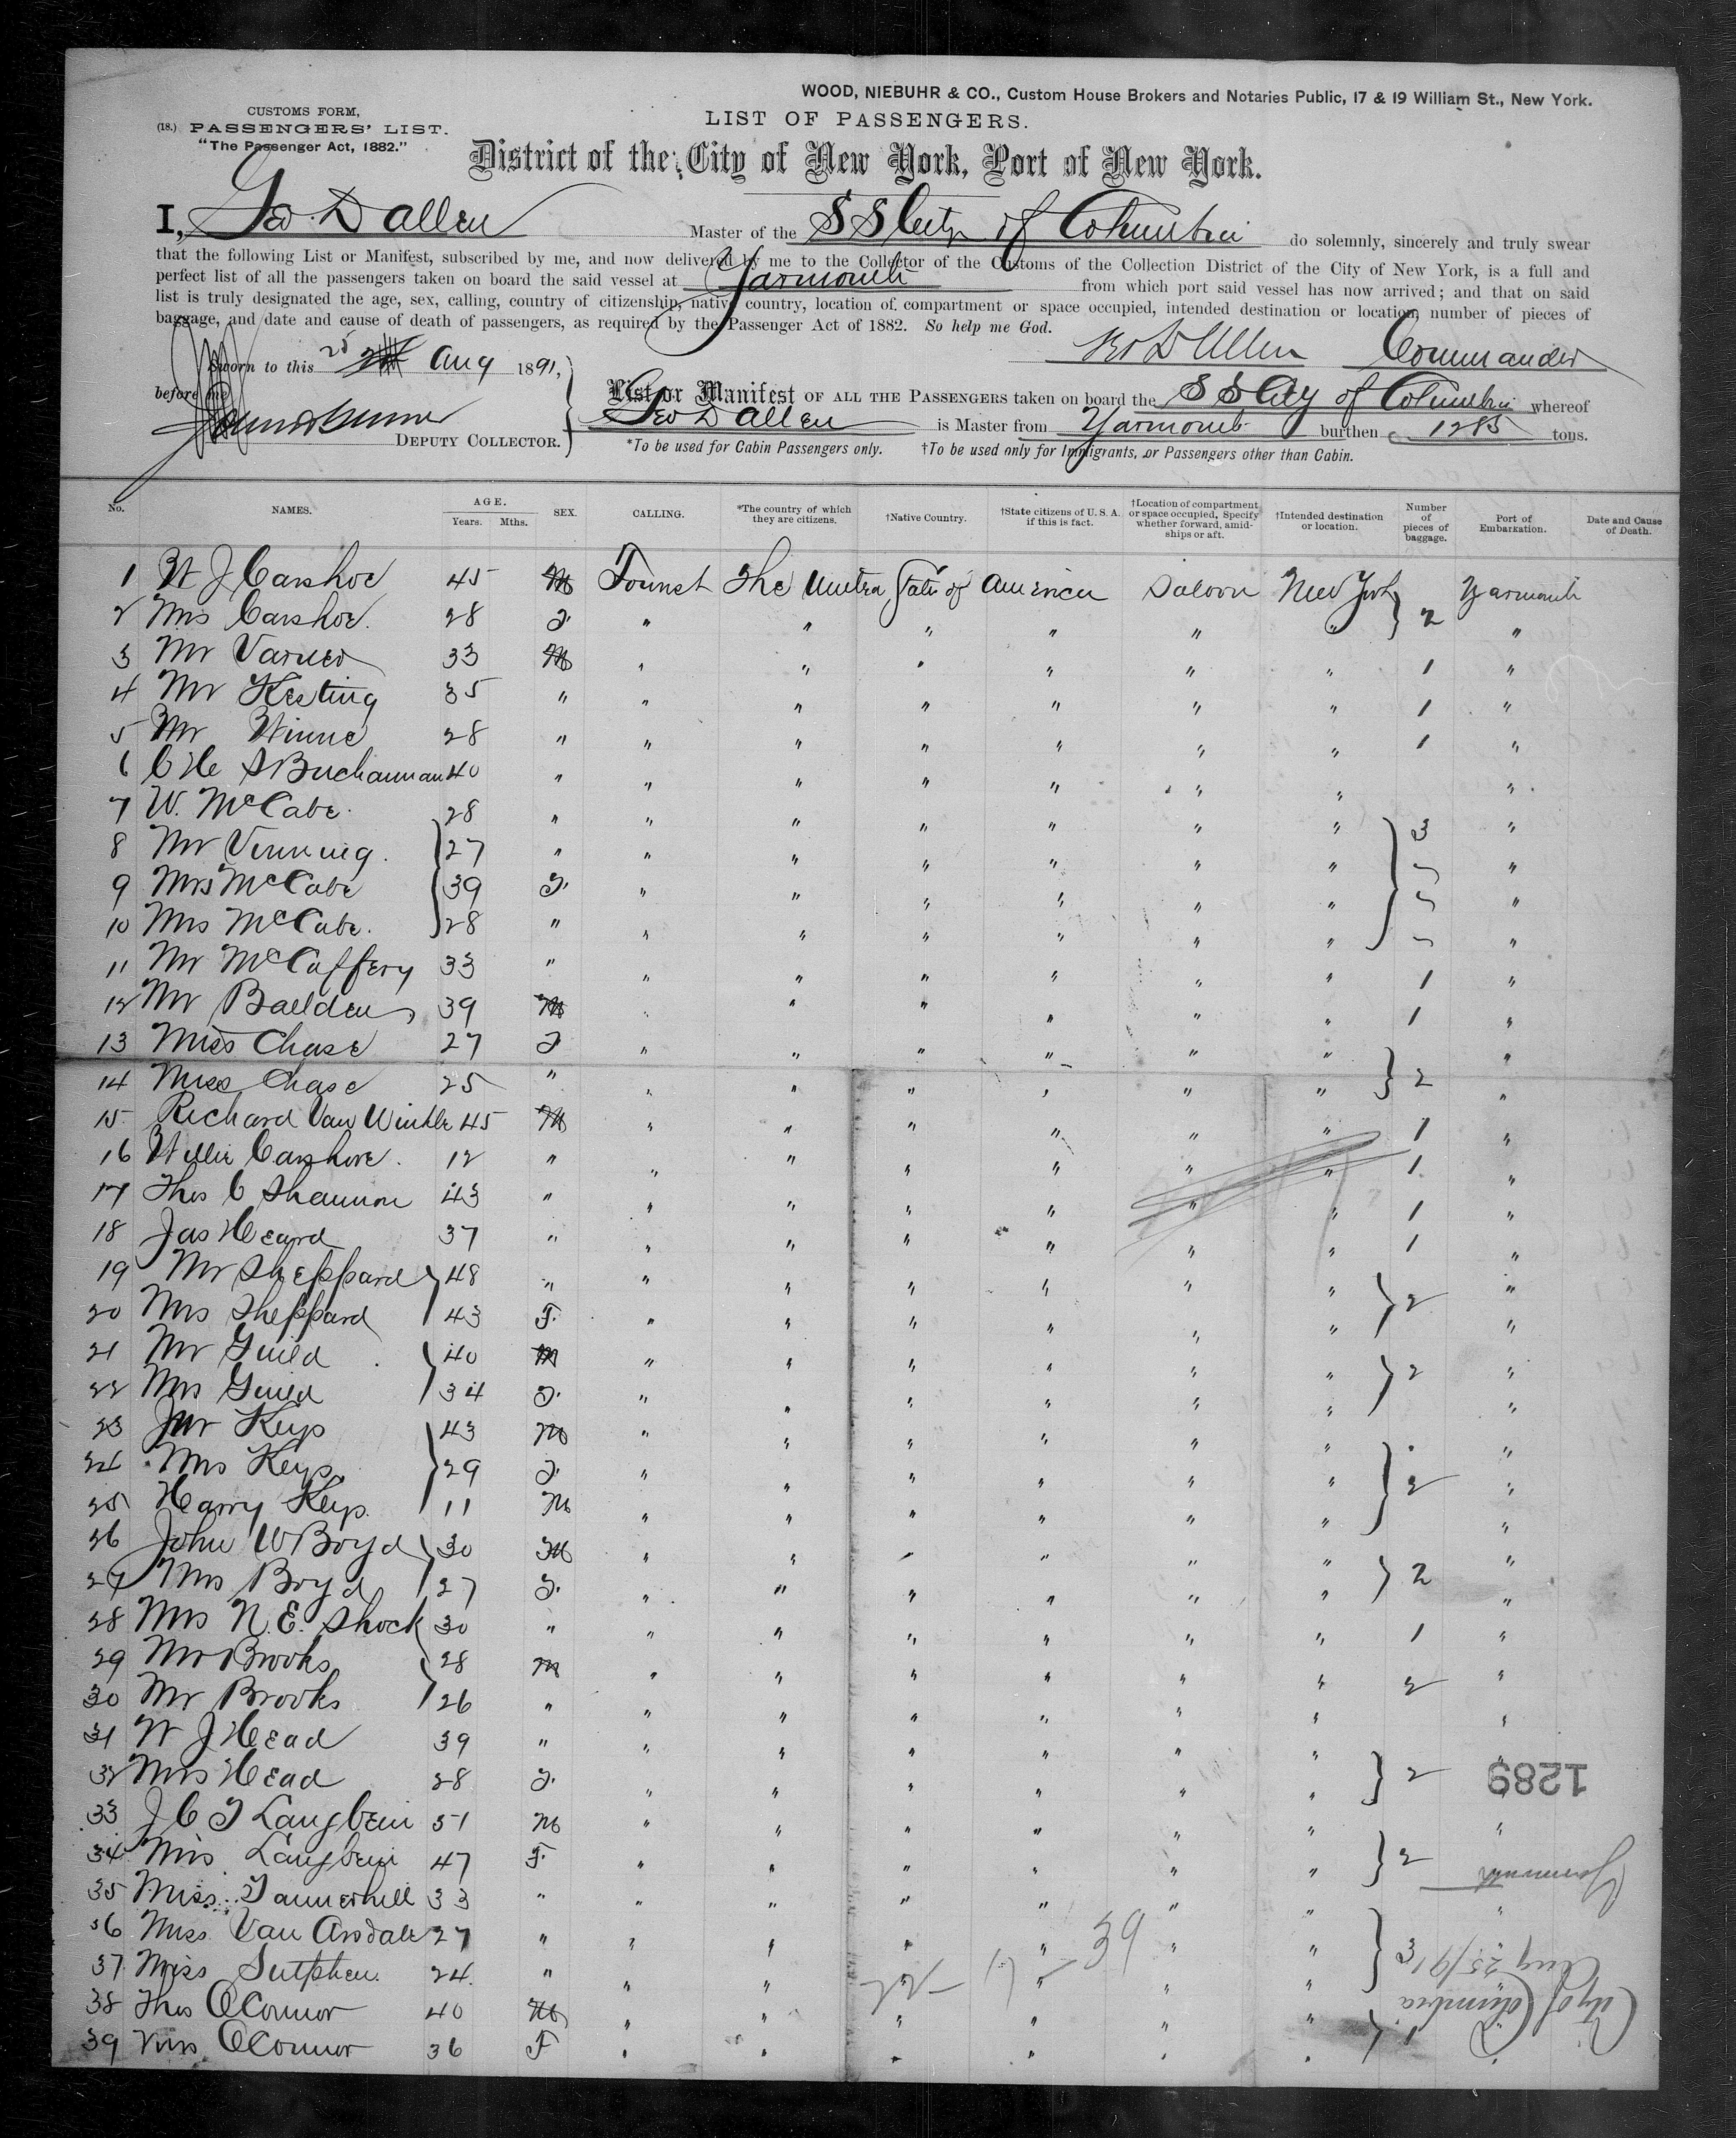 WOOD, NIEBUHR & CO., Custom House Brokers and Notaries Public, 17 & 19 William St., New York.
CUSTOMS FORM,
(18.) PASSENGERS' LIST.
"The Passenger Act, 1882."
LIST OF PASSENGERS.
District of the City of New York, Port of New York.
I, Geo. D Allen Master of the S S City of Columbia do solemnly, sincerely and truly swear
that the following List or Manifest, subscribed by me, and now delivered by me to the Collector of the Customs of the Collection District of the City of New York, is a full and
perfect list of all the passengers taken on board the said vessel at Yarmouth from which port said vessel has now arrived; and that on said
list is truly designated the age, sex, calling, country of citizenship, native country, location of compartment or space occupied, intended destination or location, number of pieces of
baggage, and date and cause of death of passengers, as required by the Passenger Act of 1882. So help me God.
Geo D Allen Commander
Sworn to this 25 Aug 1891,
before me
DEPUTY COLLECTOR.
List or Manifest OF ALL THE PASSENGERS taken on board the S S City of Columbia whereof
Geo D Allen is Master from Yarmouth burthen 1285 tons.
*To be used for Cabin Passengers only. †To be used only for Immigrants, or Passengers other than Cabin.
No. NAMES. AGE. Years. Mths. SEX. CALLING. *The country of which they are citizens. †Native Country. †State citizens of U. S. A. if this is fact. †Location of compartment or space occupied, Specify whether forward, amidships or aft. †Intended destination or location. Number of pieces of baggage. Port of Embarkation. Date and Cause of Death.
1 W J Carshoe 45 M Tourist The United States of America Saloon New York Yarmouth
2 Mrs Carshoe. 28 F. " " " " " " 2 "
3 Mr Varner 33 M " " " " " " 1 "
4 Mr Keeting 35 " " " " " " " 1 "
5 Mr Winne 28 " " " " " " " 1 "
6 C He S Buchannan 40 " " " " " " " "
7 W. McCabe. 28 " " " " " " " 3 "
8 Mr Vinning. 27 " " " " " " " " "
9 Mrs McCabe 39 F. " " " " " " " "
10 Mrs McCabe. 28 " " " " " " " " "
11 Mr McCaffery 33 " " " " " " " 1 "
12 Mr Baelden 39 M " " " " " " 1 "
13 Miss Chase 27 F " " " " " " "
14 Miss Chase 25 " " " " " " " 2 "
15 Richard Van Winkle 45 M " " " " " " 1 "
16 Willie Carshore. 12 " " " " " " " 1 "
17 Thos C Shannon 43 " " " " " " " 1 "
18 Jas Heard 37 " " " " " " " 1 "
19 Mr Sheppard 48 " " " " " " " 2 "
20 Mrs Sheppard 43 F. " " " " " " "
21 Mr Guild 40 M " " " " " " 2 "
22 Mrs Guild 34 F. " " " " " " "
23 Mr Keys 43 M " " " " " " "
24 Mrs Keys. 29 F. " " " " " " 2 "
25 Harry Keys. 11 M " " " " " " "
26 John W Boyd 30 M " " " " " " "
27 Mrs Boyd 27 F. " " " " " " 2 "
28 Mrs N. E. Shock 30 " " " " " " " 1 "
29 Mr Brooks 28 M " " " " " " 2 "
30 Mr Brooks 26 " " " " " " " "
31 W J Head 39 " " " " " " " "
32 Mrs Head 28 F. " " " " " " 2 "
33 J C J Langbein 51 M " " " " " " "
34 Mrs Langbein 47 F. " " " " " " 2
35 Miss Tannerhill 33 " " " " " " " "
36 Miss Van Arsdale 27 " " " " " " " 3 "
37 Miss Sutphen. 24 " " " " " " "
38 Thos OConnor 40 M " " " " " "
39 Mrs OConnor 36 F " " " " " " 1 "
39
22 17
1289
Yarmouth
Aug 25/91
City of Columbia